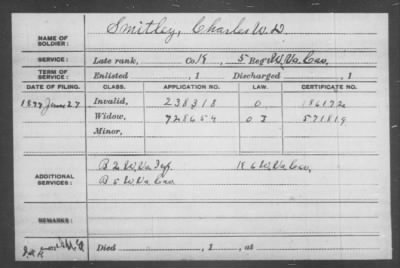 NAME OF SOLDIER: Smitley, Charles W. D.
SERVICE: Late rank, Co. K, 5 Reg't W. Va. Cav.
TERM OF SERVICE: Enlisted , 1 Discharged , 1
DATE OF FILING. CLASS. APPLICATION NO. LAW. CERTIFICATE NO.
1877 June 27 Invalid, 238318 0
Widow, 728654 571819
Minor,
ADDITIONAL SERVICES: B 2 W. Va. Inf. K 6 W. Va. Cav.
B 5 W. Va. Cav.
REMARKS:
Died , 1 , at